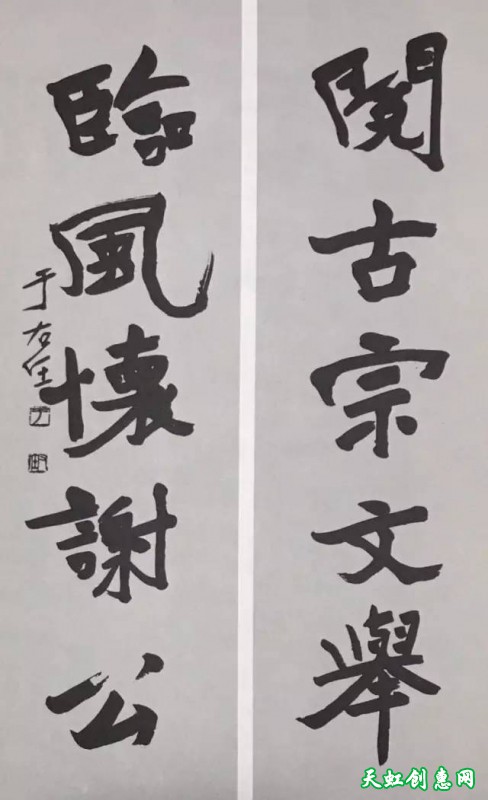 閱古宗文舉
臨風懷謝公
于右任
天虹创惠网